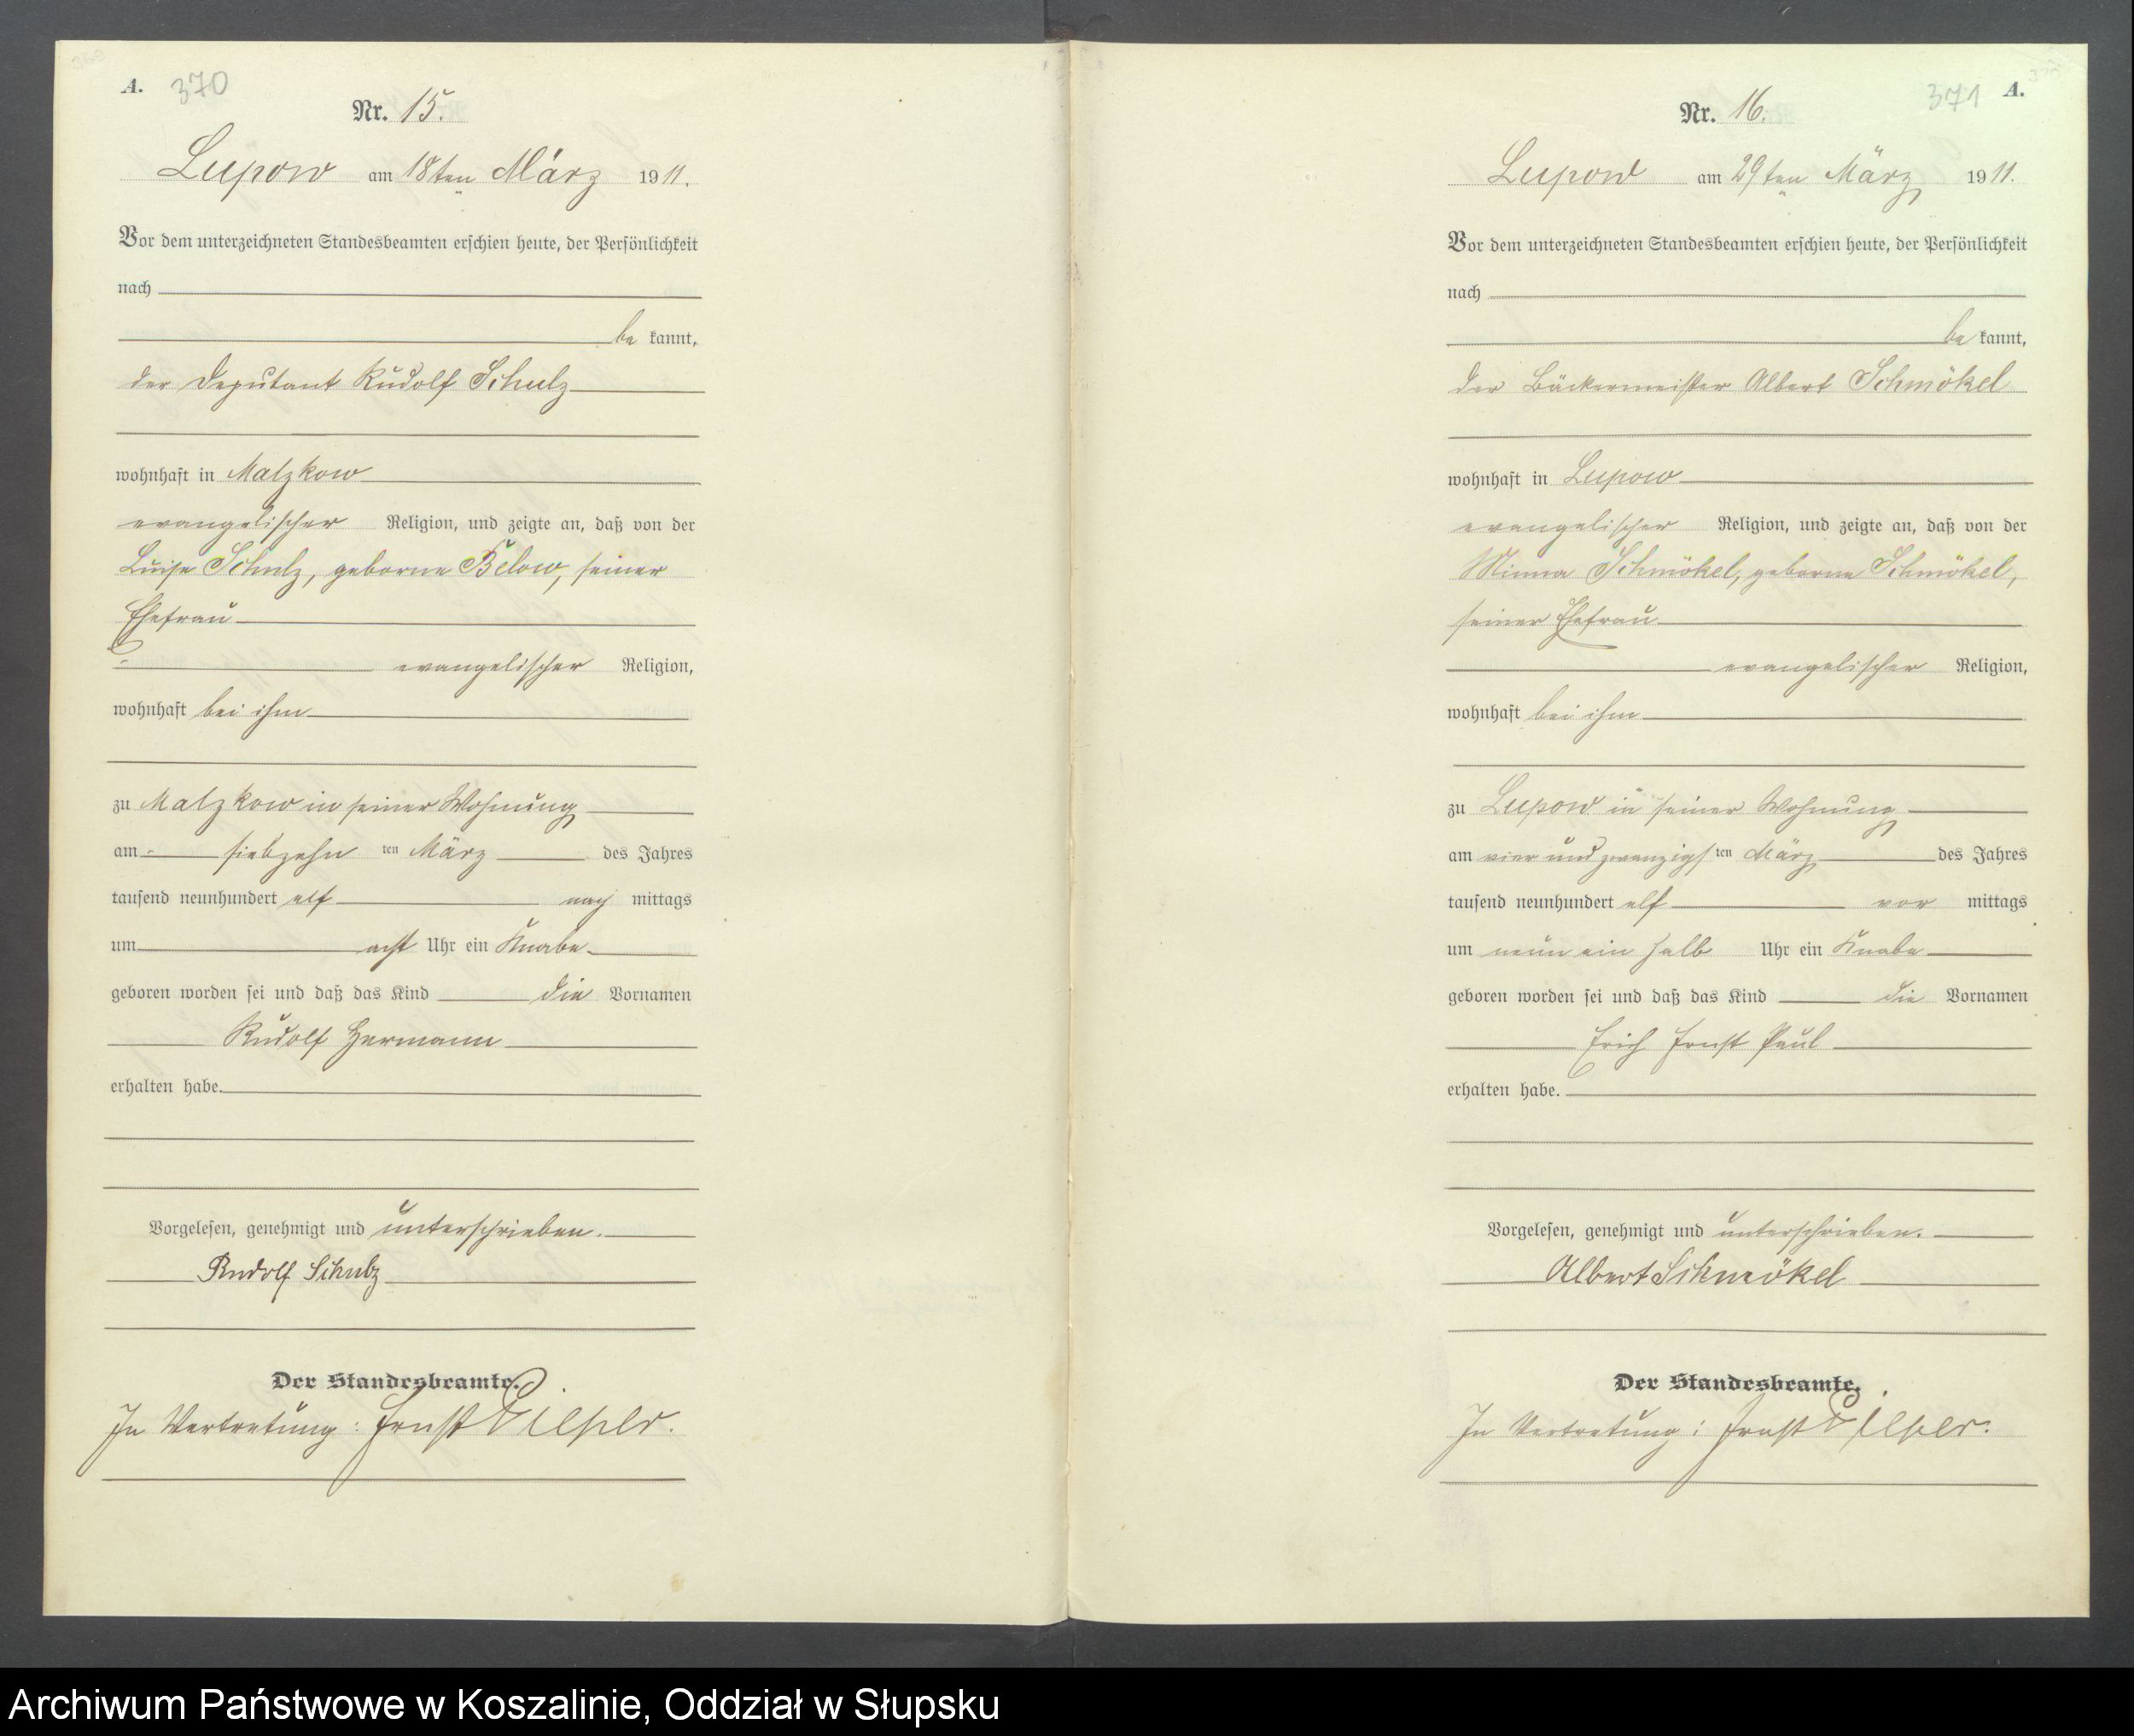 A. 370
Nr. 15.
Lupow am 18ten März 1911.
Vor dem unterzeichneten Standesbeamten erschien heute, der Persönlichkeit
nach
be kannt,
der Deputant Rudolf Schulz
wohnhaft in Malzkow
evangelischer Religion, und zeigte an, daß von der
Luise Schulz, geborne Below, seiner
Ehefrau
evangelischer Religion,
wohnhaft bei ihm
zu Malzkow in seiner Wohnung
am siebzehn ten März des Jahres
tausend neunhundert elf nach mittags
um acht Uhr ein Knabe
geboren worden sei und daß das Kind die Vornamen
Rudolf Hermann
erhalten habe.
Vorgelesen, genehmigt und unterschrieben.
Rudolf Schulz
Der Standesbeamte.
In Vertretung: Ernst Pieper.
371 A.
Nr. 16.
Lupow am 29ten März 1911.
Vor dem unterzeichneten Standesbeamten erschien heute, der Persönlichkeit
nach
be kannt,
der Bäckermeister Albert Schmökel
wohnhaft in Lupow
evangelischer Religion, und zeigte an, daß von der
Minna Schmökel, geborne Schmökel,
seiner Ehefrau
evangelischer Religion,
wohnhaft bei ihm
zu Lupow in seiner Wohnung
am vier und zwanzigs ten März des Jahres
tausend neunhundert elf vor mittags
um neun ein halb Uhr ein Knabe
geboren worden sei und daß das Kind die Vornamen
Erich Ernst Paul
erhalten habe.
Vorgelesen, genehmigt und unterschrieben.
Albert Schmökel
Der Standesbeamte.
In Vertretung: Ernst Pieper.
Archiwum Państwowe w Koszalinie, Oddział w Słupsku